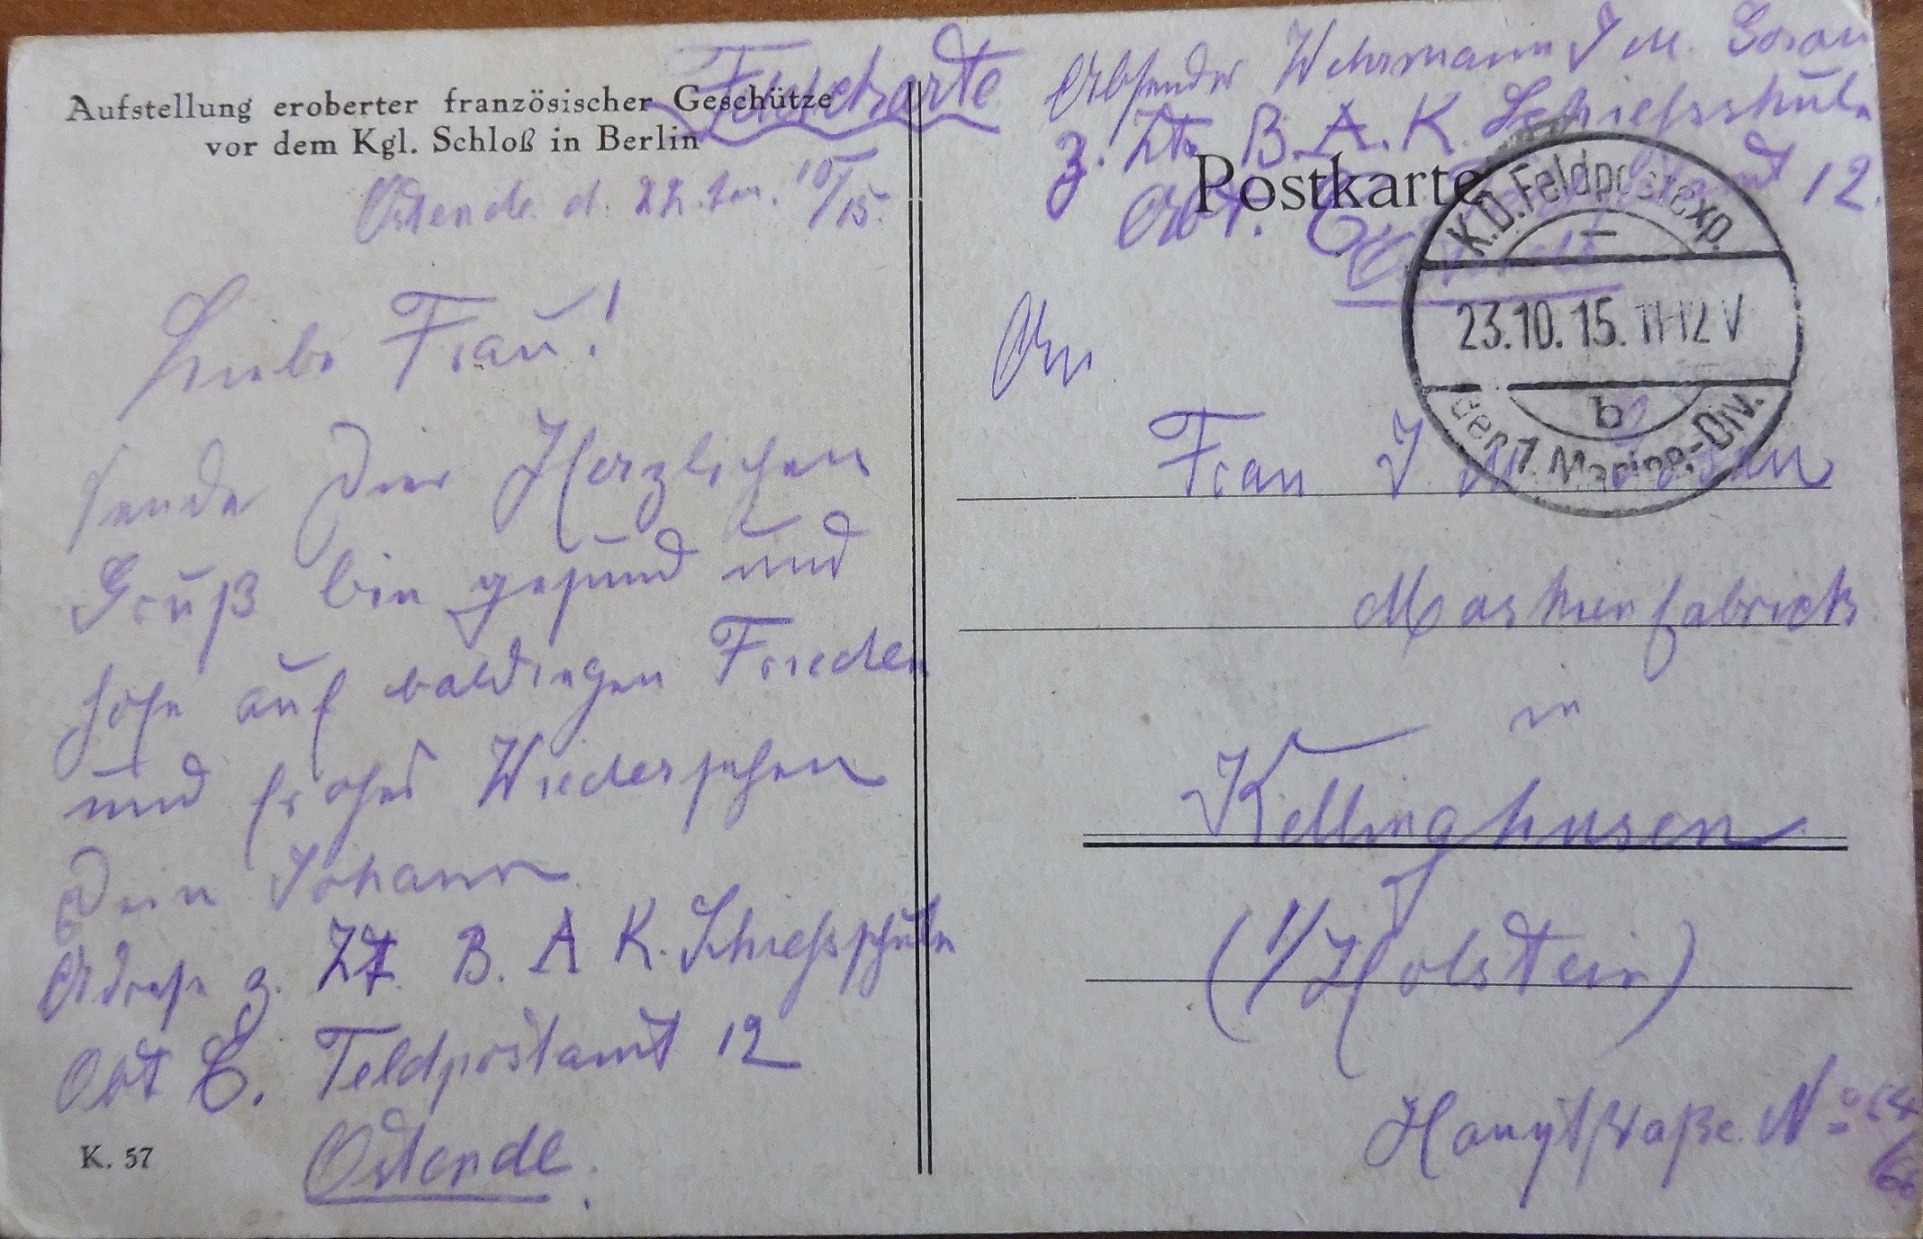 Aufstellung eroberter französischer Geschütze
vor dem Kgl. Schloß in Berlin
Ostende d. 22. ten. 10/15.
Liebe Frau!
sende Dier Herzlichen
Gruß bin gesund und
hofe auf baldiegen Frieden
und frohes Wiedersehen
Dein Johann
Adresse z. Zt. B. A K. Schiefsschule
Abt C. Feldpostamt 12
Ostende.
K. 57
Absender Wehrmann J M.
z. Zt. B. A. K. Schiefsschule
Postkarte
Abt. C. 12.
Ostende
K.D. Feldpostexp.
23.10.15. 11-12 V
b
der 1. Marine-Div.
An
Frau J.
Maschienfabrick
in
Kellinghusen
(i/Holstein)
Hauptstraße No 64